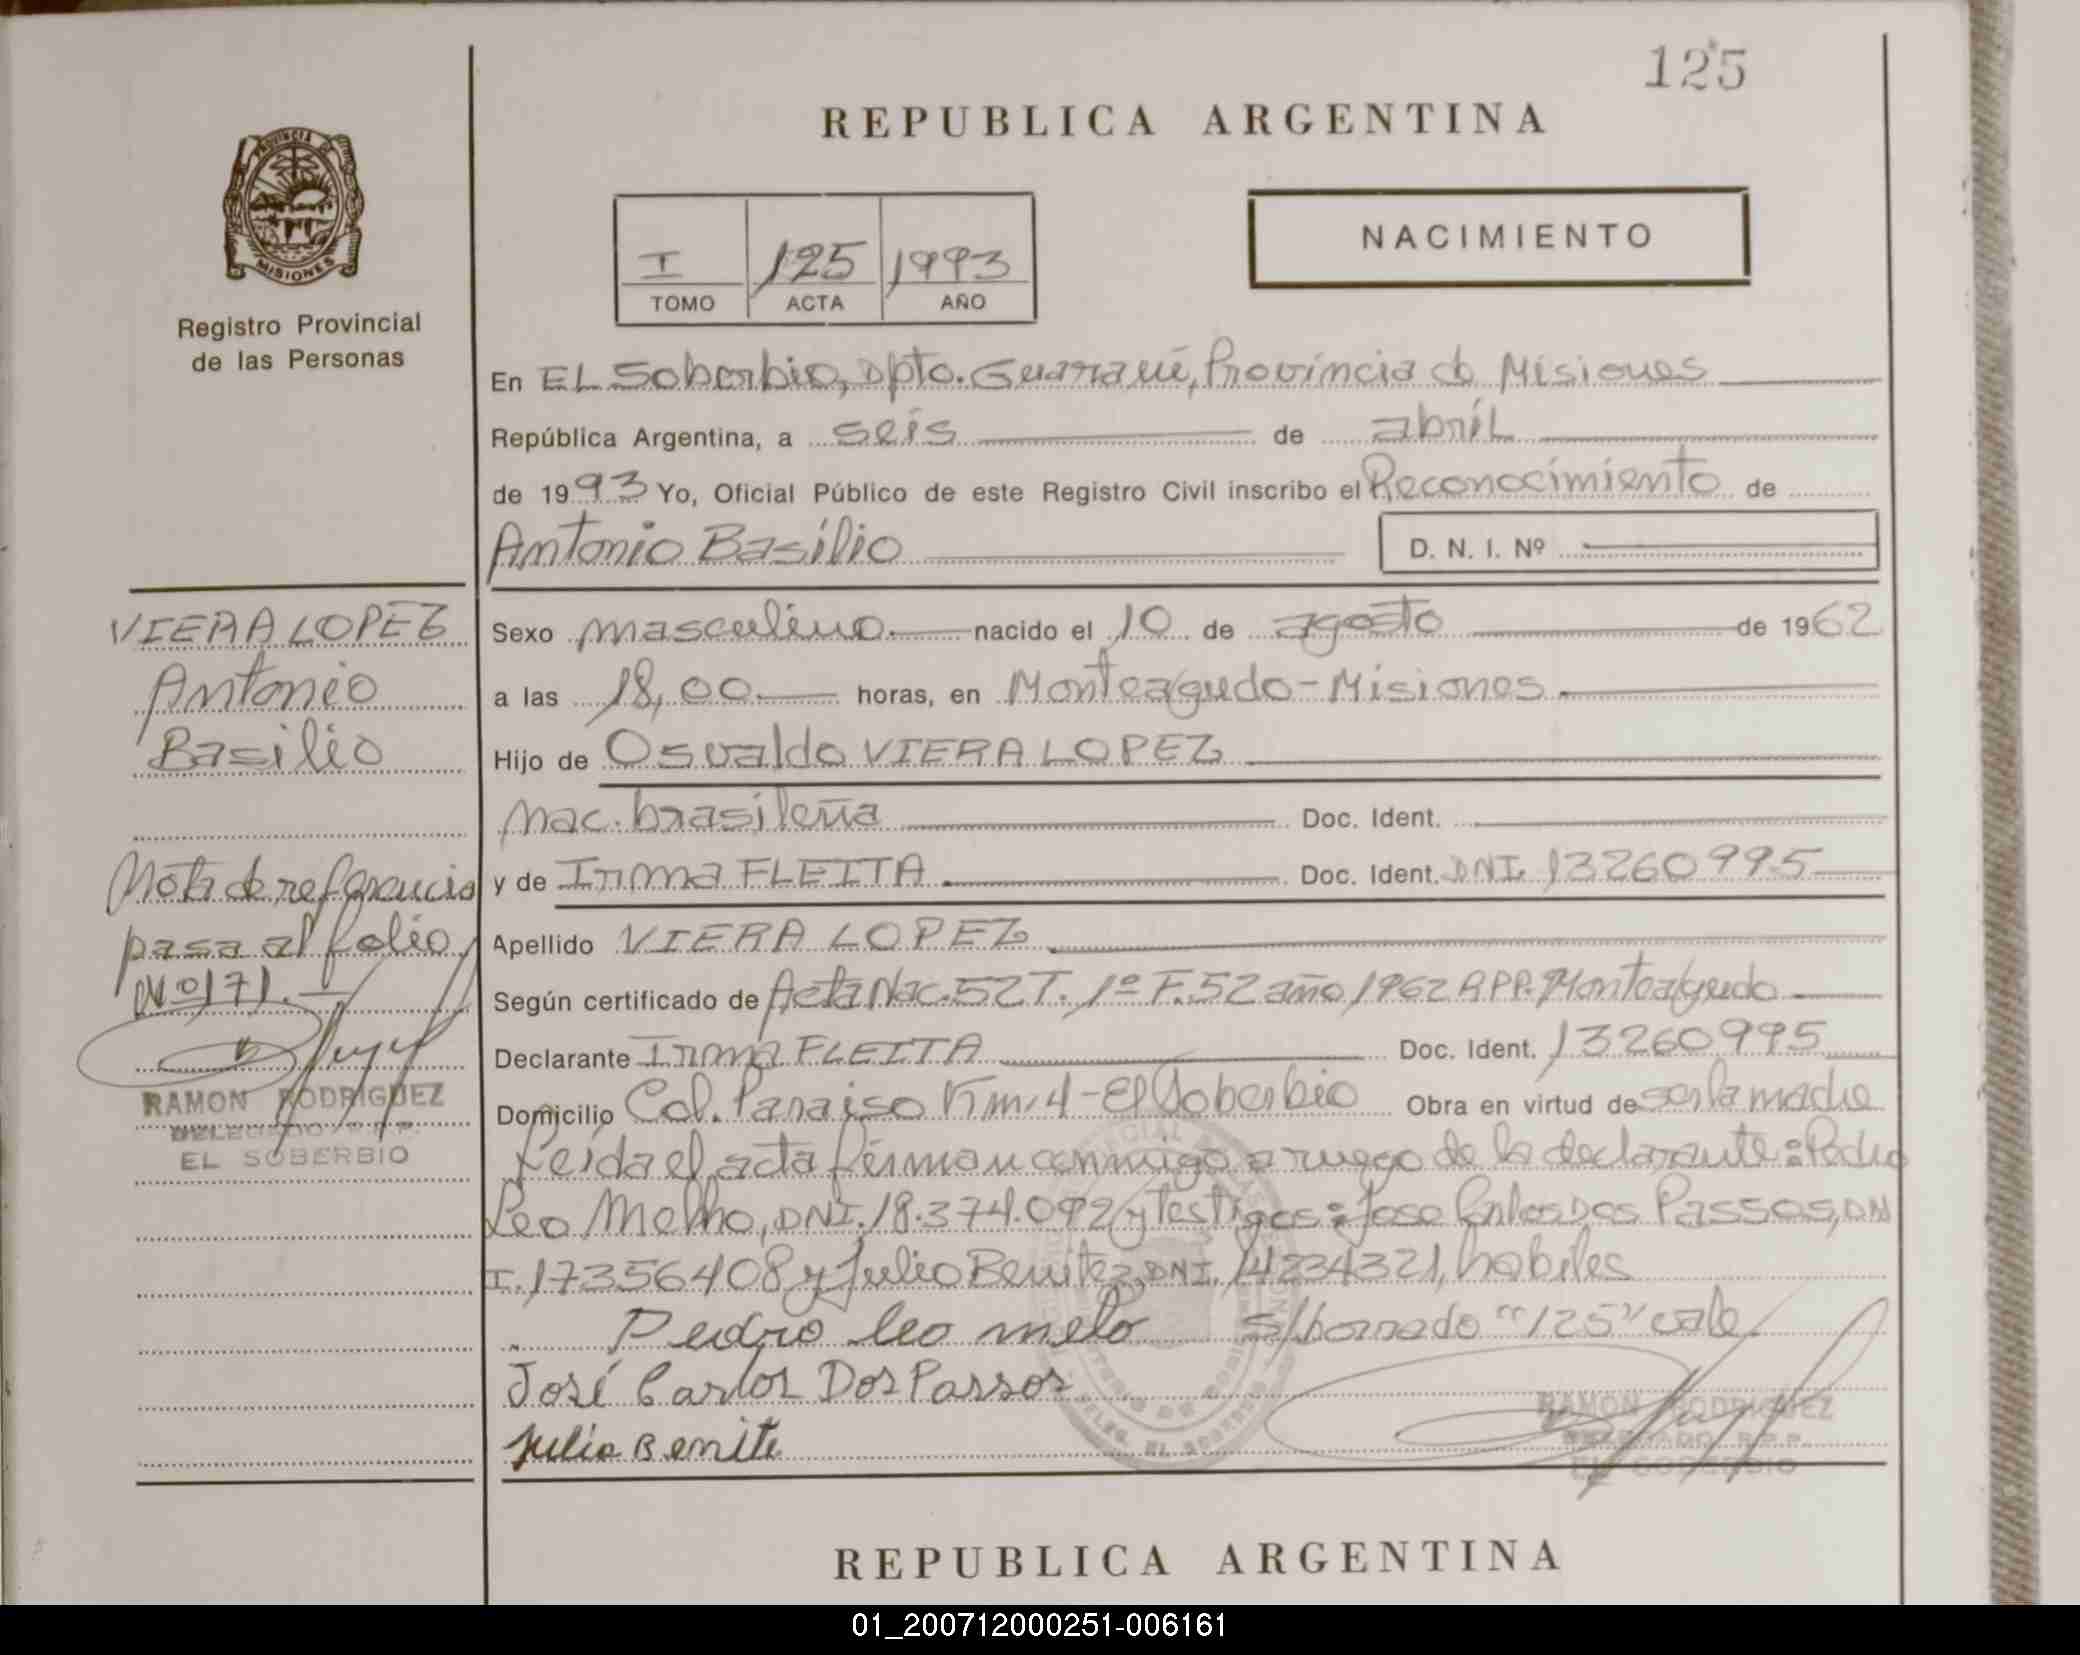 125
REPUBLICA ARGENTINA
PROVINCIA DE
MISIONES
Registro Provincial
de las Personas
I 125 1993
TOMO ACTA AÑO
NACIMIENTO
En EL Soberbio, Dpto. Guaraní, Provincia de Misiones
República Argentina, a seis de abril
de 1993 Yo, Oficial Público de este Registro Civil inscribo el Reconocimiento de
Antonio Basilio D. N. I. Nº
VIERA LOPEZ
Antonio
Basilio
Nota de referencia
pasa al folio
Nº 171.
RAMON RODRIGUEZ
DELEGADO R.P.P.
EL SOBERBIO
Sexo masculino nacido el 10 de agosto de 1962
a las 18,00 horas, en Monteagudo - Misiones
Hijo de Osvaldo VIERA LOPEZ
Nac. brasileña Doc. Ident.
y de Irma FLEITA Doc. Ident. DNI. 13260995
Apellido VIERA LOPEZ
Según certificado de Acta Nac. 52 T. 1º F. 52 año 1962 R.P.P. Monteagudo
Declarante Irma FLEITA Doc. Ident. 13260995
Domicilio Col. Paraiso Km. 4 - El Soberbio Obra en virtud de ser la madre
Leída el acta firman conmigo a ruego de la declarante: Pedro
Leo Melho, DNI. 18.374.092 y testigos: Jose Carlos Dos Passos, DN
I. 17356408 y Julio Benitez, DNI. 14234321, habiles
Pedro leo melo S/borrado "125" vale
José Carlos Dos Passos
Julio Benite
RAMON RODRIGUEZ
DELEGADO R.P.P.
EL SOBERBIO
REPUBLICA ARGENTINA
01_200712000251-006161